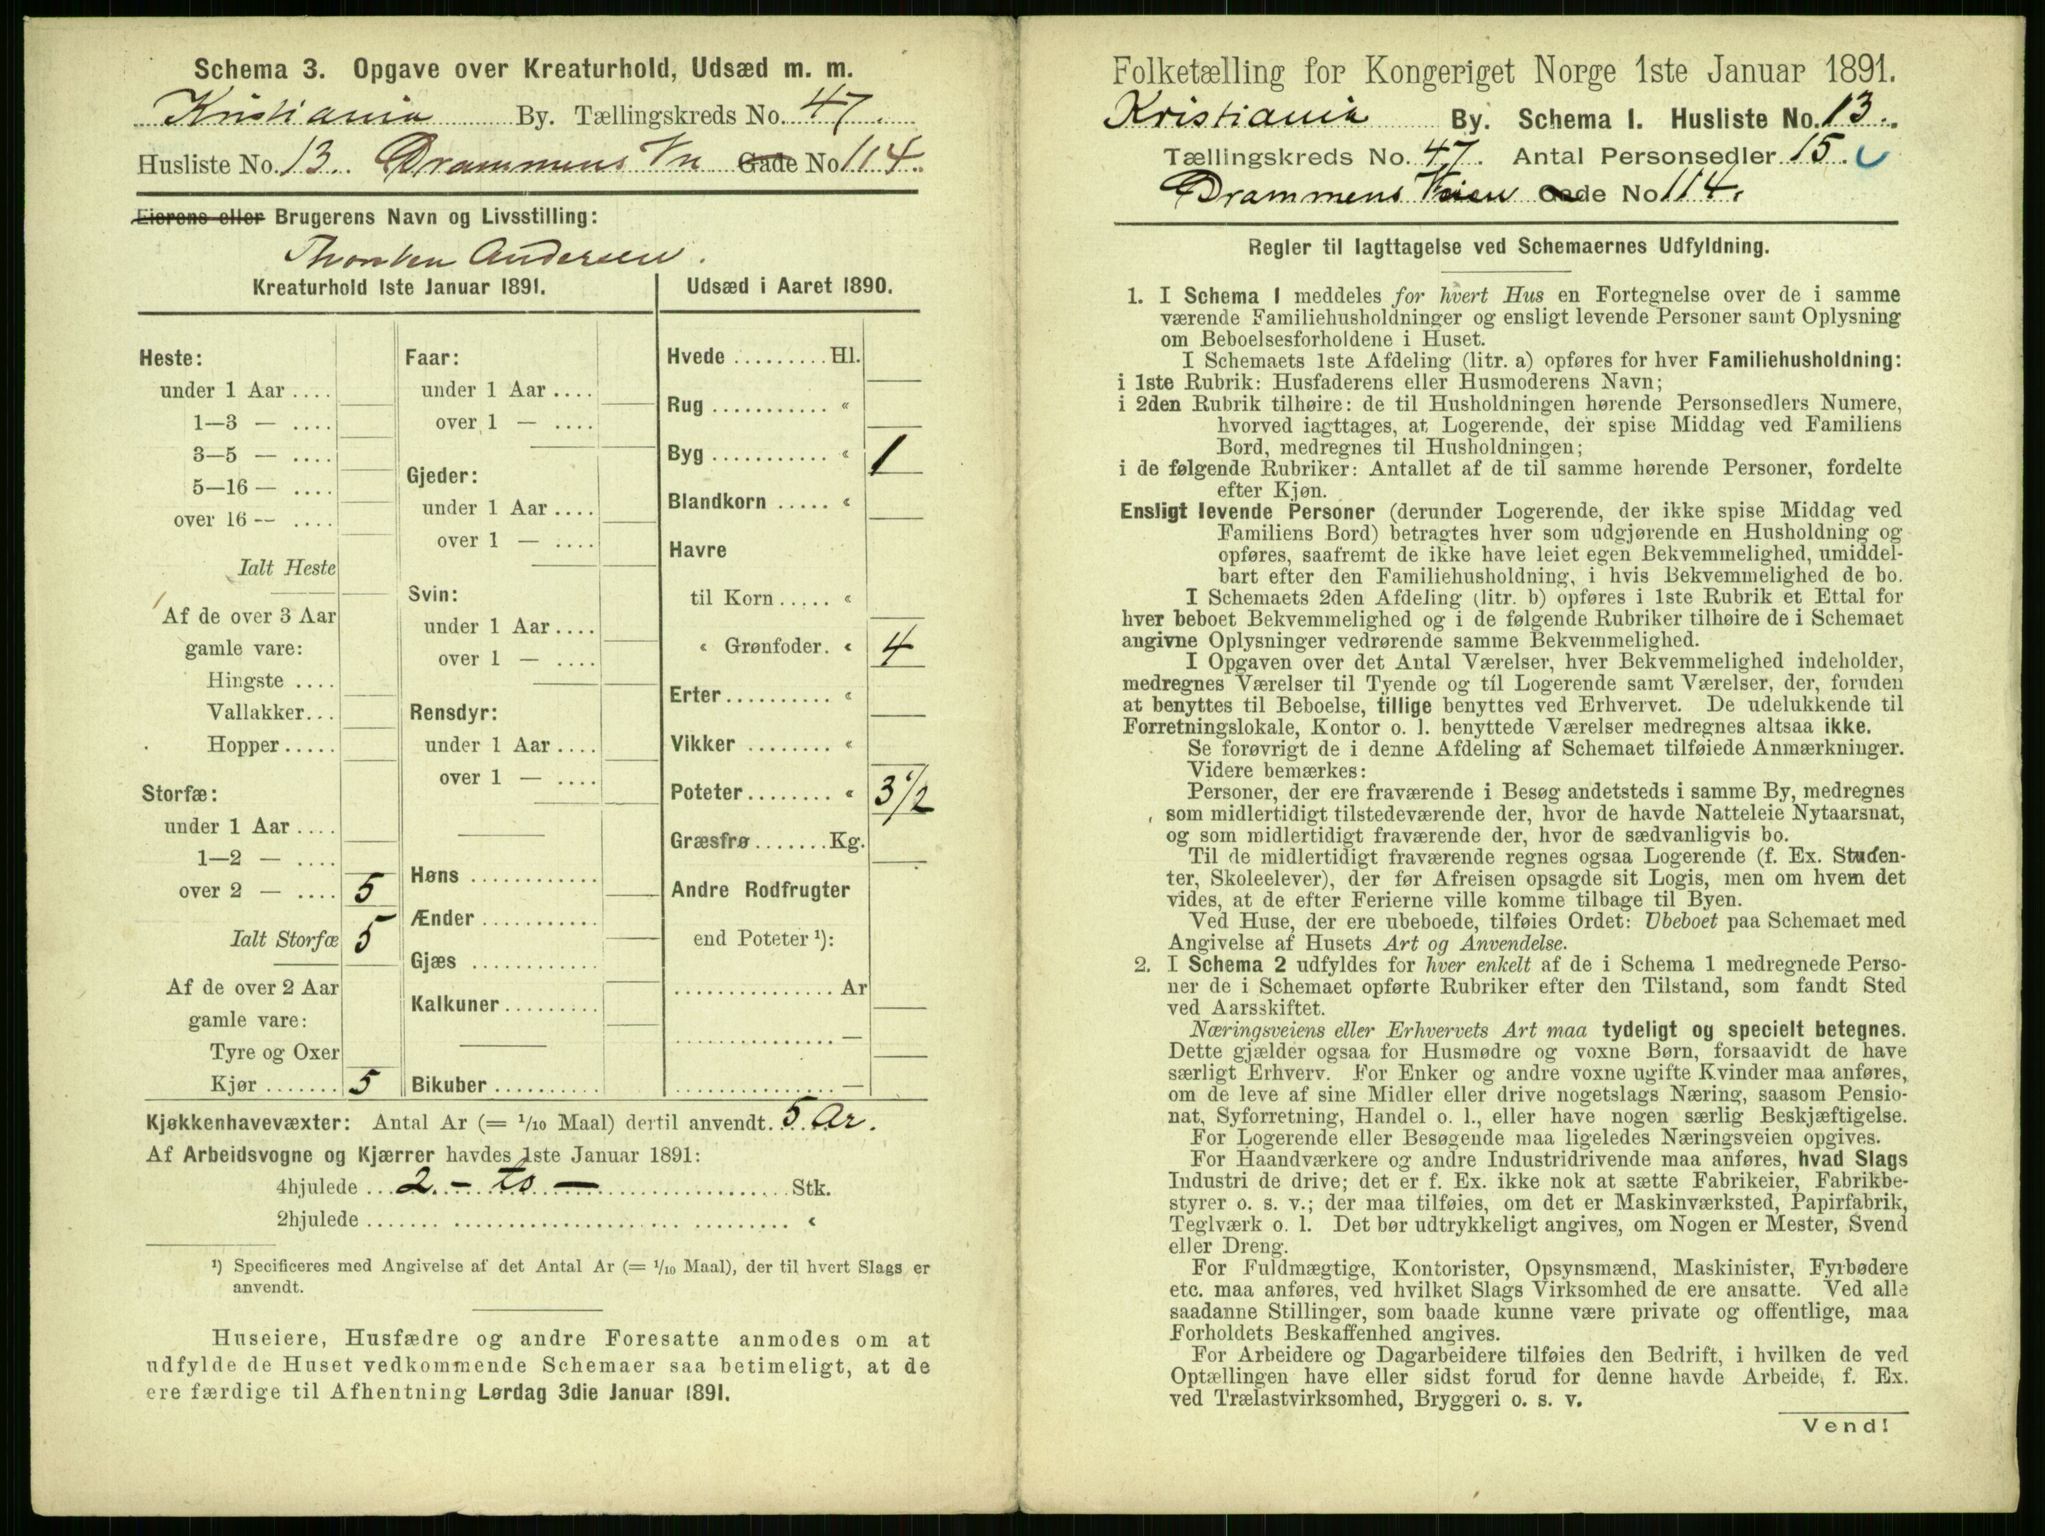 Schema 3. Opgave over Kreaturhold, Udsæd m. m.
Kristiania By. Tællingskreds No. 47.
Husliste No. 13. Drammens Vn Gade No 114.
Eierens eller Brugerens Navn og Livsstilling:
Andersen.
Kreaturhold 1ste Januar 1891.
Heste:
under 1 Aar ....
1—3 — ....
3—5 — ....
5—16 — ....
over 16 — ....
Ialt Heste
Af de over 3 Aar
gamle vare:
Hingste ....
Vallakker...
Hopper.....
Storfæ:
under 1 Aar ....
1—2 — ....
over 2 — .... 5
Ialt Storfæ 5
Af de over 2 Aar
gamle vare:
Tyre og Oxer
Kjør ....... 5
Faar:
under 1 Aar ....
over 1 — ....
Gjeder:
under 1 Aar ....
over 1 — ....
Svin:
under 1 Aar ....
over 1 — ....
Rensdyr:
under 1 Aar ....
over 1 — ....
Høns ............
Ænder ...........
Gjæs ............
Kalkuner .........
Bikuber ..........
Udsæd i Aaret 1890.
Hvede ......... Hl.
Rug ........... «
Byg ........... « 1
Blandkorn ..... «
Havre
til Korn ..... «
« Grønfoder. « 4
Erter .......... «
Vikker ........ «
Poteter ........ « 3 1/2
Græsfrø ....... Kg.
Andre Rodfrugter
end Poteter ¹):
............... Ar
............... —
............... —
Kjøkkenhavevæxter: Antal Ar (= 1/10 Maal) dertil anvendt. 5 Ar.
Af Arbeidsvogne og Kjærrer havdes 1ste Januar 1891:
4hjulede ... 2. — to — ... Stk.
2hjulede ....... «
¹) Specificeres med Angivelse af det Antal Ar (= 1/10 Maal), der til hvert Slags er
anvendt.
Huseiere, Husfædre og andre Foresatte anmodes om at
udfylde de Huset vedkommende Schemaer saa betimeligt, at de
ere færdige til Afhentning Lørdag 3die Januar 1891.
Folketælling for Kongeriget Norge 1ste Januar 1891.
Kristiania By. Schema 1. Husliste No. 13.
Tællingskreds No. 47. Antal Personsedler 15.
Drammens Veien Gade No 114.
Regler til Iagttagelse ved Schemaernes Udfyldning.
1. I Schema 1 meddeles for hvert Hus en Fortegnelse over de i samme
værende Familiehusholdninger og ensligt levende Personer samt Oplysning
om Beboelsesforholdene i Huset.
I Schemaets 1ste Afdeling (litr. a) opføres for hver Familiehusholdning:
i 1ste Rubrik: Husfaderens eller Husmoderens Navn;
i 2den Rubrik tilhøire: de til Husholdningen hørende Personsedlers Numere,
hvorved iagttages, at Logerende, der spise Middag ved Familiens
Bord, medregnes til Husholdningen;
i de følgende Rubriker: Antallet af de til samme hørende Personer, fordelte
efter Kjøn.
Ensligt levende Personer (derunder Logerende, der ikke spise Middag ved
Familiens Bord) betragtes hver som udgjørende en Husholdning og
opføres, saafremt de ikke have leiet egen Bekvemmelighed, umiddel-
bart efter den Familiehusholdning, i hvis Bekvemmelighed de bo.
I Schemaets 2den Afdeling (litr. b) opføres i 1ste Rubrik et Ettal for
hver beboet Bekvemmelighed og i de følgende Rubriker tilhøire de i Schemaet
angivne Oplysninger vedrørende samme Bekvemmelighed.
I Opgaven over det Antal Værelser, hver Bekvemmelighed indeholder,
medregnes Værelser til Tyende og til Logerende samt Værelser, der, foruden
at benyttes til Beboelse, tillige benyttes ved Erhvervet. De udelukkende til
Forretningslokale, Kontor o. l. benyttede Værelser medregnes altsaa ikke.
Se forøvrigt de i denne Afdeling af Schemaet tilføiede Anmærkninger.
Videre bemærkes:
Personer, der ere fraværende i Besøg andetsteds i samme By, medregnes
som midlertidigt tilstedeværende der, hvor de havde Natteleie Nytaarsnat,
og som midlertidigt fraværende der, hvor de sædvanligvis bo.
Til de midlertidigt fraværende regnes ogsaa Logerende (f. Ex. Studen-
ter, Skoleelever), der før Afreisen opsagde sit Logis, men om hvem det
vides, at de efter Ferierne ville komme tilbage til Byen.
Ved Huse, der ere ubeboede, tilføies Ordet: Ubeboet paa Schemaet med
Angivelse af Husets Art og Anvendelse.
2. I Schema 2 udfyldes for hver enkelt af de i Schema 1 medregnede Perso-
ner de i Schemaet opførte Rubriker efter den Tilstand, som fandt Sted
ved Aarsskiftet.
Næringsveiens eller Erhvervets Art maa tydeligt og specielt betegnes.
Dette gjælder ogsaa for Husmødre og voxne Børn, forsaavidt de have
særligt Erhverv. For Enker og andre voxne ugifte Kvinder maa anføres,
om de leve af sine Midler eller drive nogetslags Næring, saasom Pensio-
nat, Syforretning, Handel o. l., eller have nogen særlig Beskjæftigelse.
For Logerende eller Besøgende maa ligeledes Næringsveien opgives.
For Haandværkere og andre Industridrivende maa anføres, hvad Slags
Industri de drive; det er f. Ex. ikke nok at sætte Fabrikeier, Fabrikbe-
styrer o. s. v.; der maa tilføies, om det er Maskinværksted, Papirfabrik,
Teglværk o. l. Det bør udtrykkeligt angives, om Nogen er Mester, Svend
eller Dreng.
For Fuldmægtige, Kontorister, Opsynsmænd, Maskinister, Fyrbødere
etc. maa anføres, ved hvilket Slags Virksomhed de ere ansatte. Ved alle
saadanne Stillinger, som baade kunne være private og offentlige, maa
Forholdets Beskaffenhed angives.
For Arbeidere og Dagarbeidere tilføies den Bedrift, i hvilken de ved
Optællingen have eller sidst forud for denne havde Arbeide, f. Ex.
ved Trælastvirksomhed, Bryggeri o. s. v.
Vend!